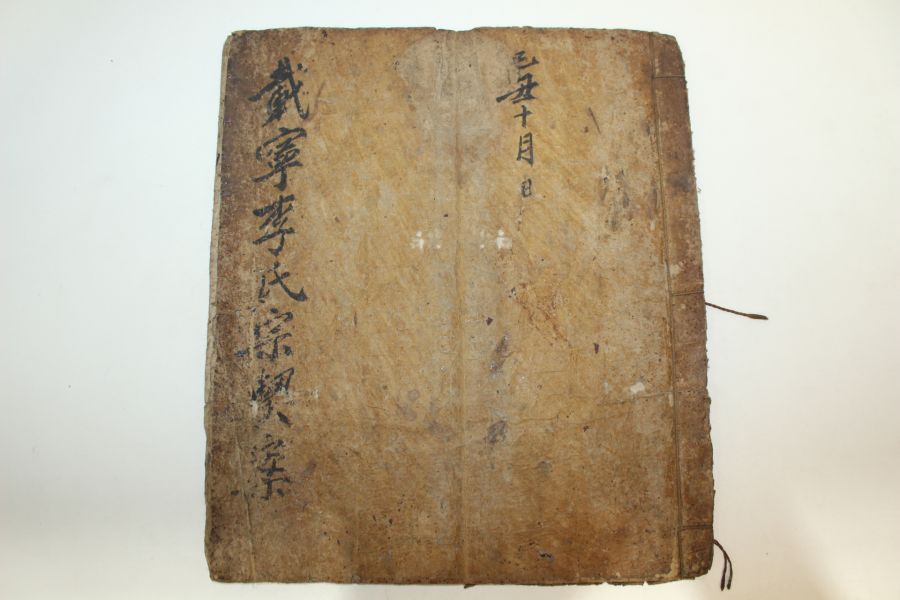 己丑十月 日
載寧李氏宗契案